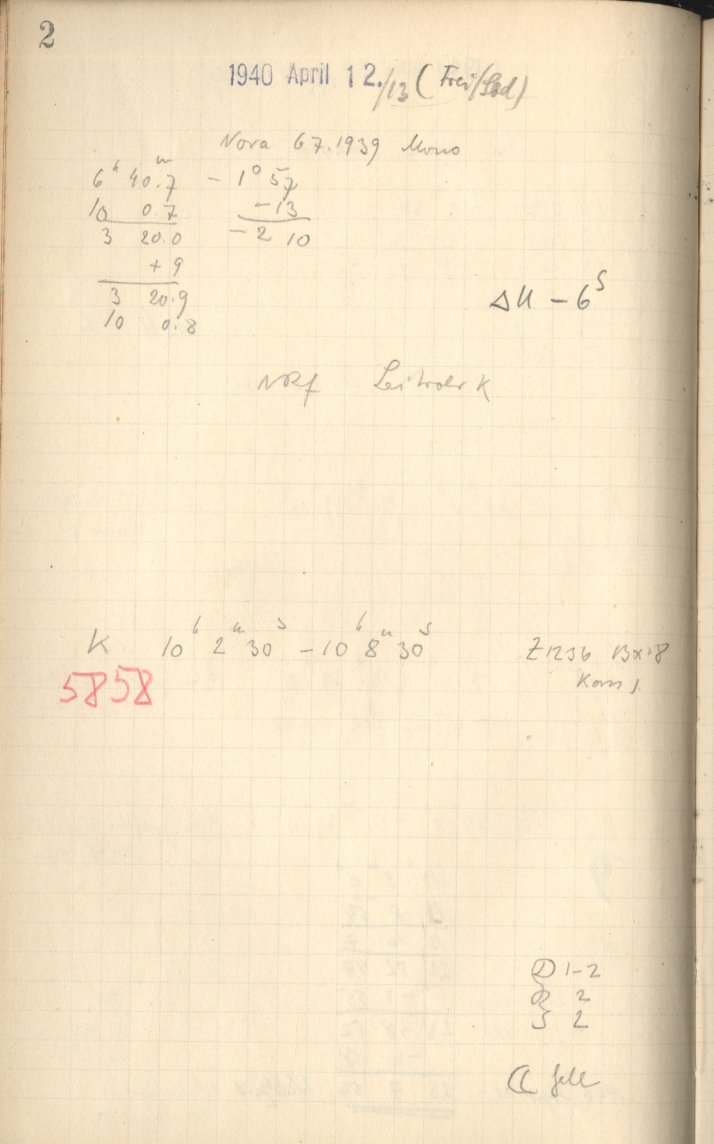 2
1940 April 12./13 (Frei/Sad)
Nova 67.1939 Mono
6h 40m.7 - 1° 57
10 0.7 -13
3 20.0 -2 10
+ 9
3 20.9
10 0.8
ΔU - 6s
Leitrohr K
K 10h 2m 30s - 10h 8m 30s
5858
Z1236 13x18
Kass 1
D 1-2
R 2
S 2
hell